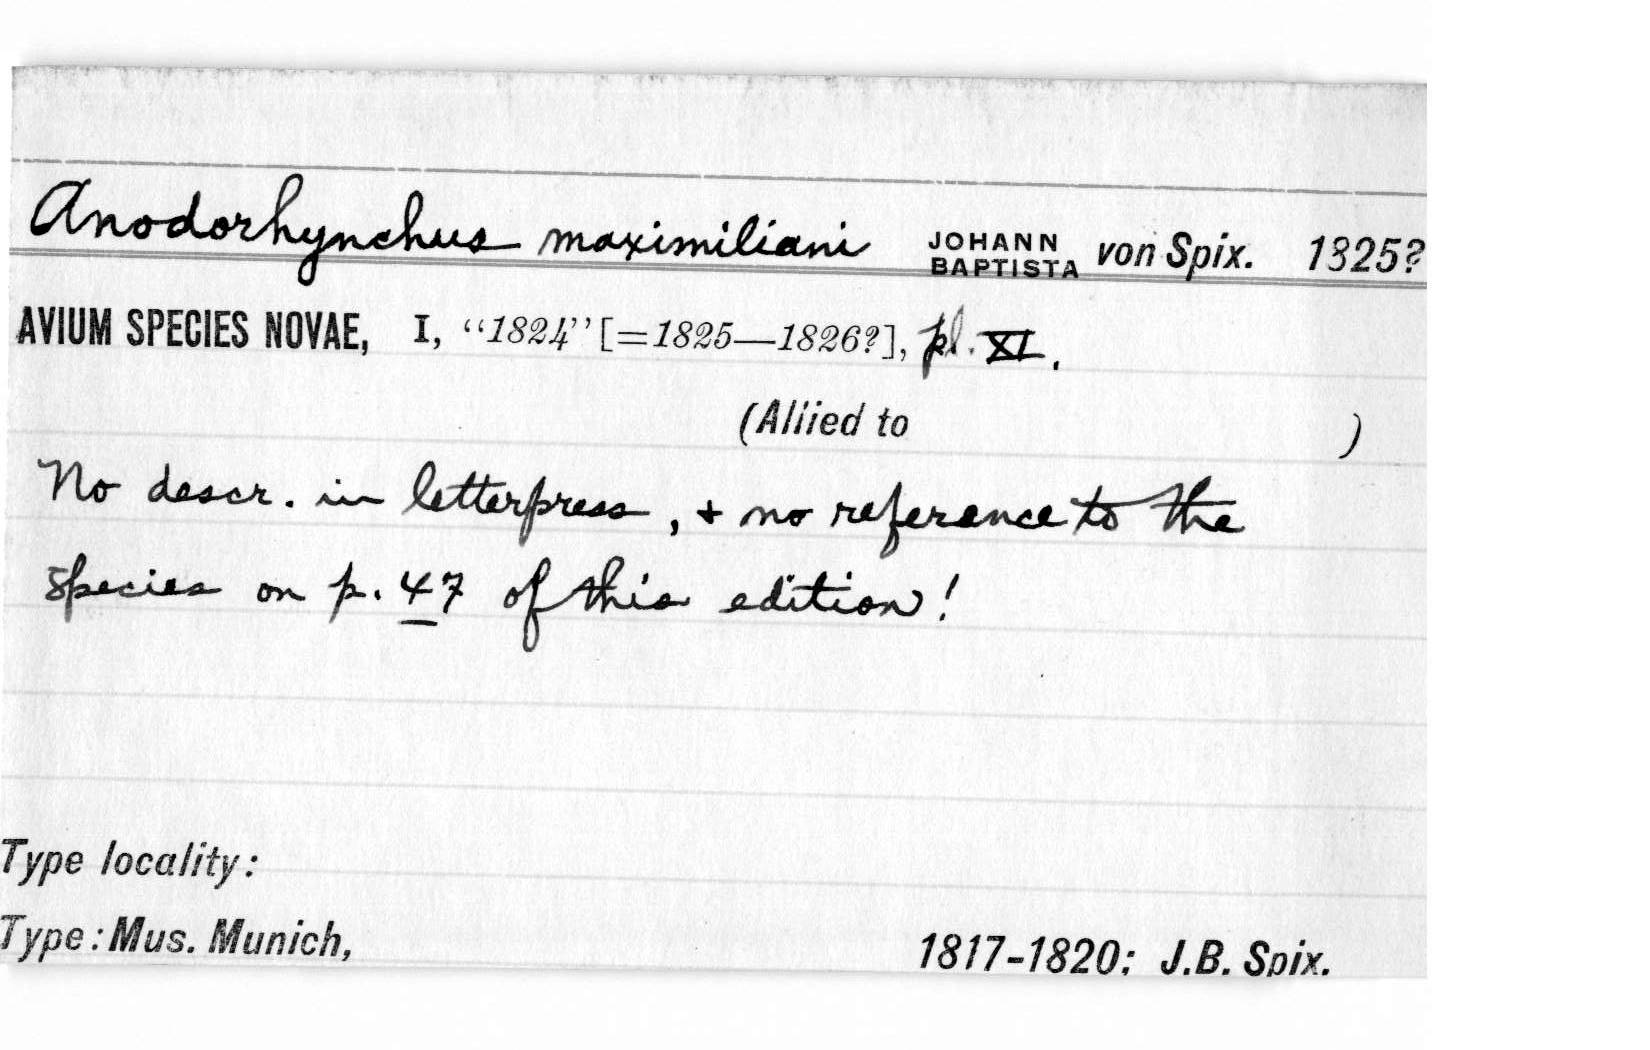 Anodorhynchus maximiliani JOHANN BAPTISTA von Spix. 1825?
AVIUM SPECIES NOVAE, I, “1824” [=1825—1826?], pl. XI.
(Allied to )
No descr. in letterpress, + no reference to the
species on p. 47 of this edition!
Type locality:
Type: Mus. Munich, 1817-1820; J.B. Spix.